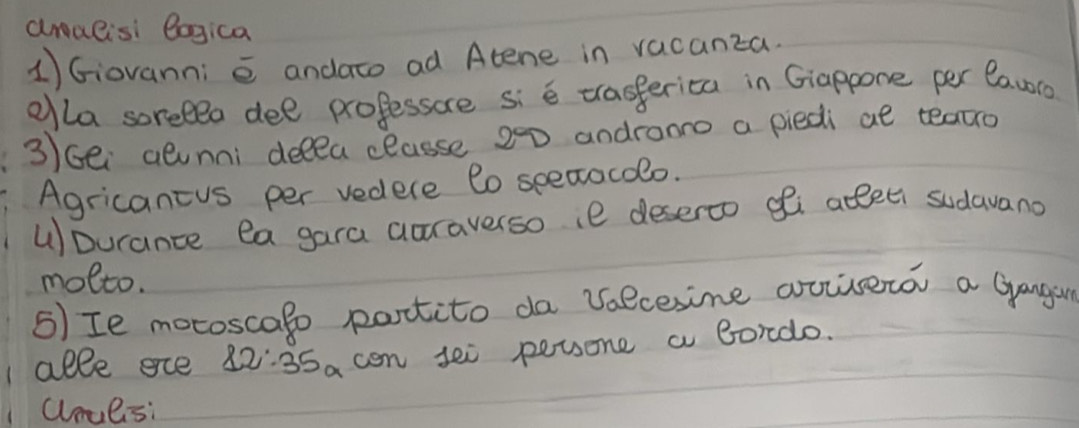 analisi logica
1) Giovanni è andato ad Atene in vacanza.
2) La sorella del professore si è trasferita in Giappone per lavoro
3) Gli alunni della classe 2D andranno a piedi al teatro
Agricantus per vedere lo spettacolo.
4) Durante la gara attraverso il deserto gli atleti sudavano
molto.
5) Il motoscafo partito da Valcesine arriverà a
alle ore 12:35 con sei persone a bordo.
analisi